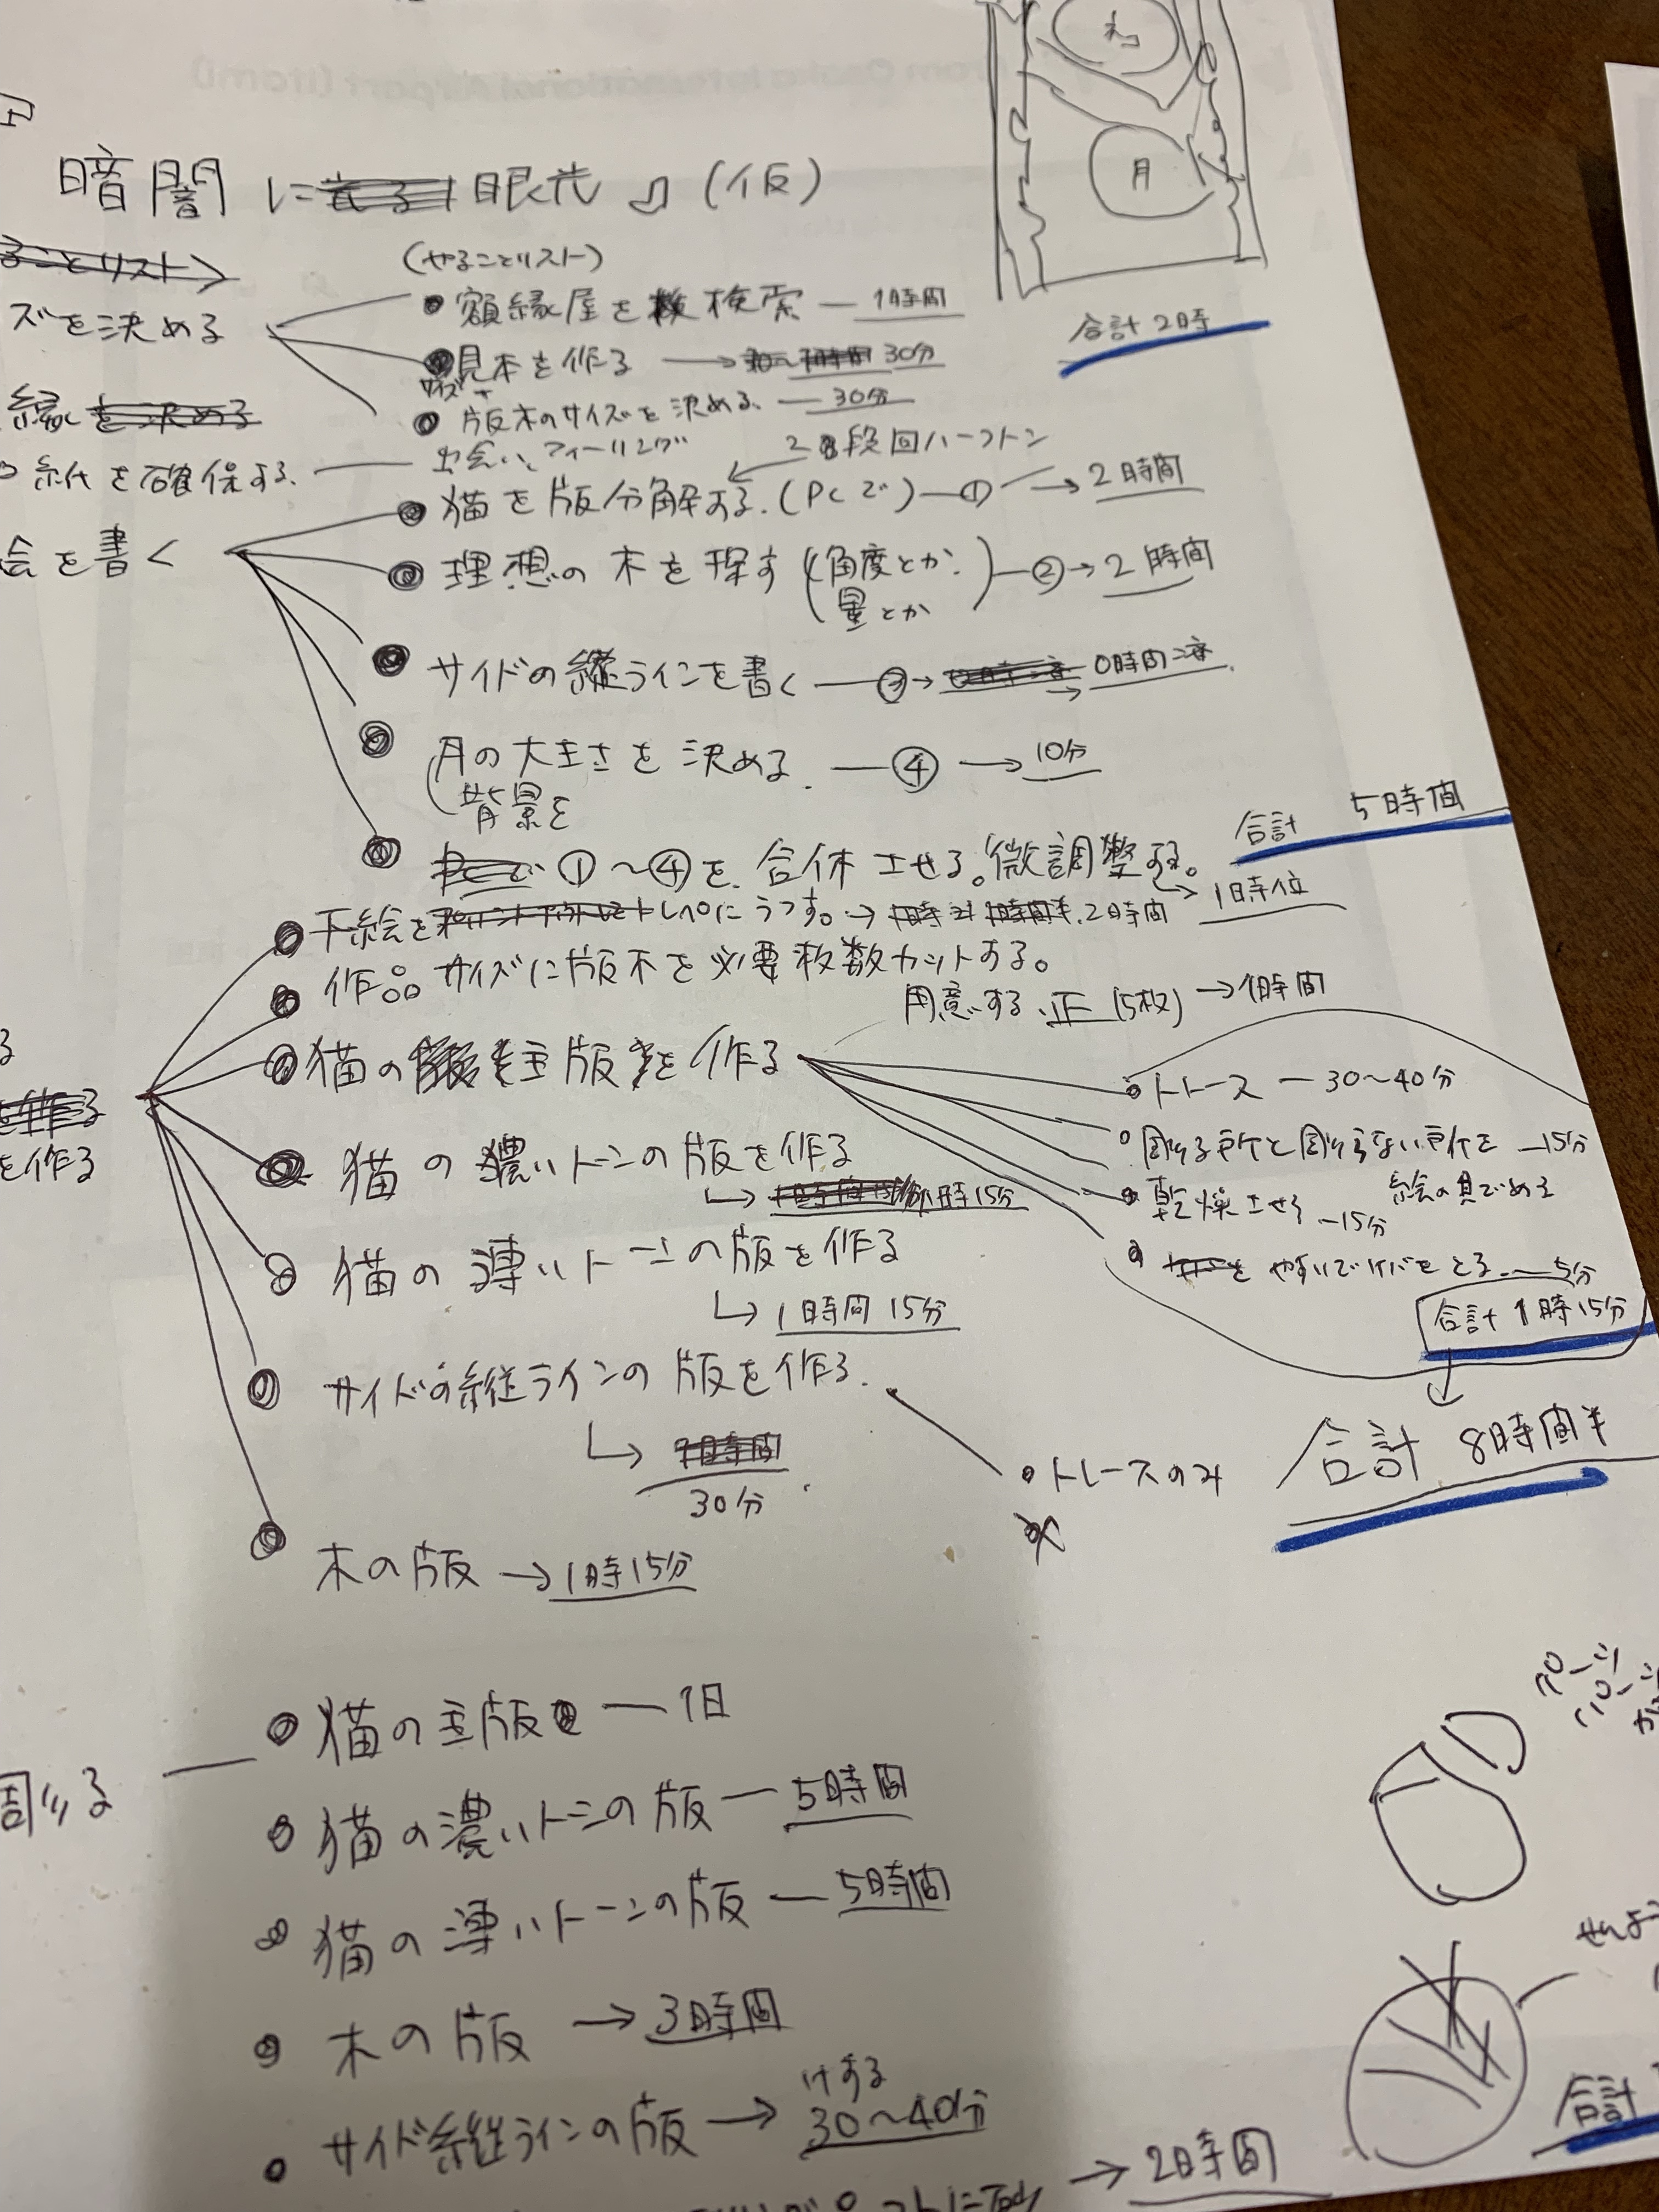 ネコ
月
暗闇に眼光 (仮)
(やることリスト)
ることリスト
ズを決める
額縁屋を検索 — 1時間
合計 2時
見本を作る → 30分
版木のサイズを決める — 30分
縁を決める
出会い、フィーリング
2段回ハーフトン
紙を確保する.
猫を版分解する. (PCで) — ① → 2時間
絵を書く
理想の木を探す (角度とか. 量とか) — ② → 2時間
サイドの縦ラインを書く — ③ → 0時間
月の大きさを決める. — ④ → 10分
背景を
合計 5時間
①〜④を合体させる。微調整する。
→ 1時位
下絵をトレペにうつす。→ 2時間
作品サイズに版木を必要枚数カットする。
用意する. 正 (5枚) → 1時間
猫の主版を作る
トレース — 30〜40分
彫る所と彫らない所を — 15分
絵の具でぬる
を作る
を作る
猫の濃いトーンの版を作る
→ 1時15分
乾燥させる — 15分
やすりでケバをとる. — 5分
猫の薄いトーンの版を作る
→ 1時間15分
合計 1時15分
サイドの縦ラインの版を作る.
→ 1時間
30分
トレースのみ
合計 8時間半
木の版 → 1時15分
猫の主版 — 1日
彫る
猫の濃いトーンの版 — 5時間
猫の薄いトーンの版 — 5時間
木の版 → 3時間
サイド縦ラインの版 → 30〜40分
合計
→ 2時間